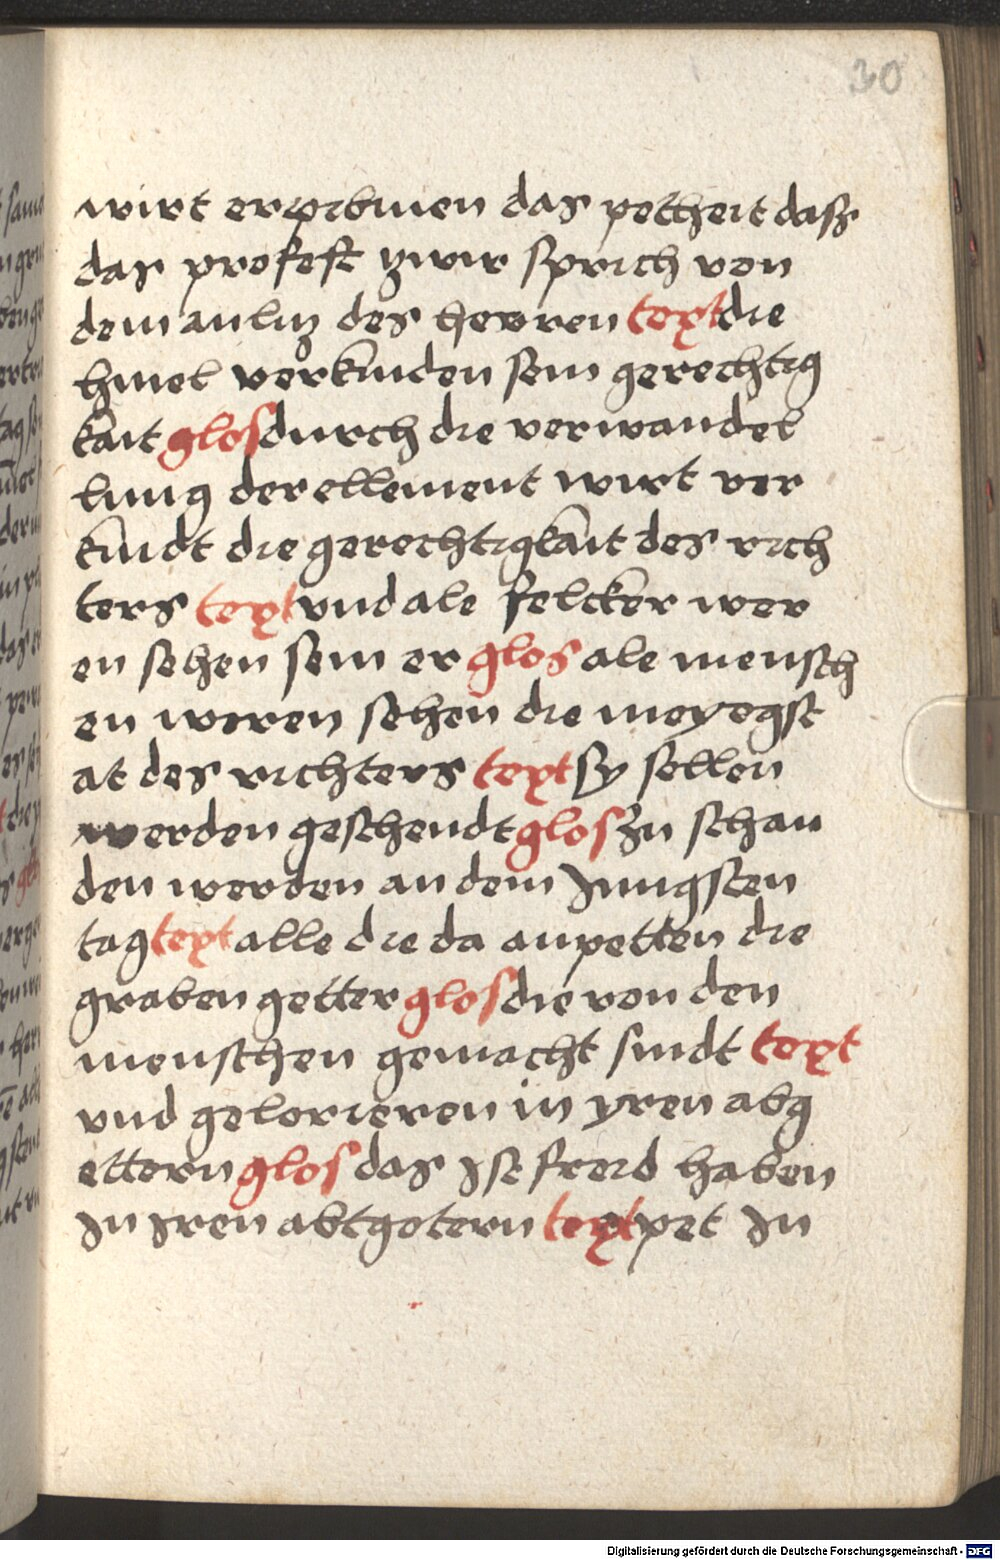 30
wirt erpibmen das petheit dass
das profest zwir sprich von
dem anlitz des herren text die
himel verkinden sein gerechtig
kait glos durch die verwandel
lung der ellement wirt ver
kindt die gerechtigkait des rich
ters text vnd ale felcker wer
en sehen sein er glos ale mensch
en weren sehen die meyegst
at des richters text sy sellen
werden geschendt glos zu schan
den werden an dem Jungsten
tag text alle die da anpetten die
graben getter glos die von den
menschen gemacht sindt text
vnd gelorieren in yren abg
ettern glos das Ist freid haben
In Iren abtgotern text pet In
Digitalisierung gefördert durch die Deutsche Forschungsgemeinschaft - DFG